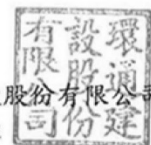 環通建
設股份
有限公司
股份有限公司